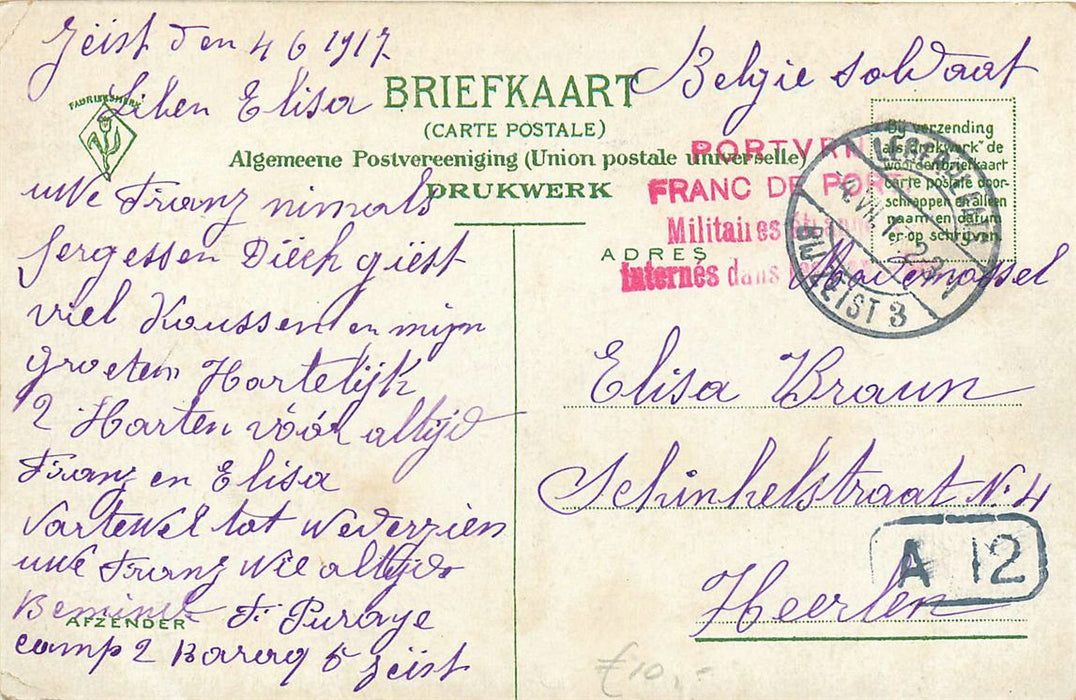 Zëist den 4 6 1917
Liben Elisa
FABRIEKSMERK
BRIEFKAART
(CARTE POSTALE)
Algemeene Postvereeniging (Union postale universelle)
DRUKWERK
Belgie soldaat
Bij verzending
als „drukwerk" de
woorden briefkaart
carte postale door-
schrappen en alleen
naam en datum
er op schrijven.
PORTVRIJ
FRANC DE PORT
Militaires
Internés dans
BIJ ZEIST 3
uwe Franz nimals
fergessen Diëch giëst
viel Koussen en mijn
groeten Hartelijk
2 Harten vóór altijd
Franz en Elisa
vartewel tot wederzien
uwe Franz wie altijd
Beminde F. Puraye
AFZENDER
camp 2 Baraq 5 Zëist
ADRES
Maidemossel
Elisa Braun
Schinkelstraat N. 4
Heerlen
A 12
£ 10,-